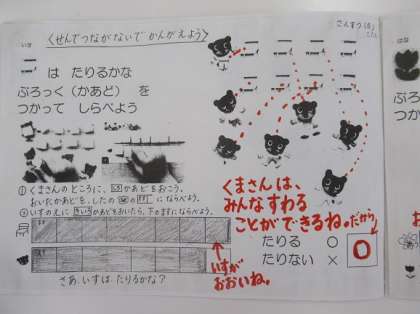 さんすう(8)
〈せんでつながないで かんがえよう〉
いす
は たりるかな
ぶろっく(かあど) を
つかって しらべよう
①くまさんのところに、かあどをおこう。
おいたかあどを、したの の に ならべよう。
②いすのえに きいろかあどをおいたら、下のますにならべよう。
くまさんは、
みんなすわる
ことができるね。だから
たりる ○
たりない ×
○
↑いすが
おおいね。
さあ、いすは、たりるかな?
はな